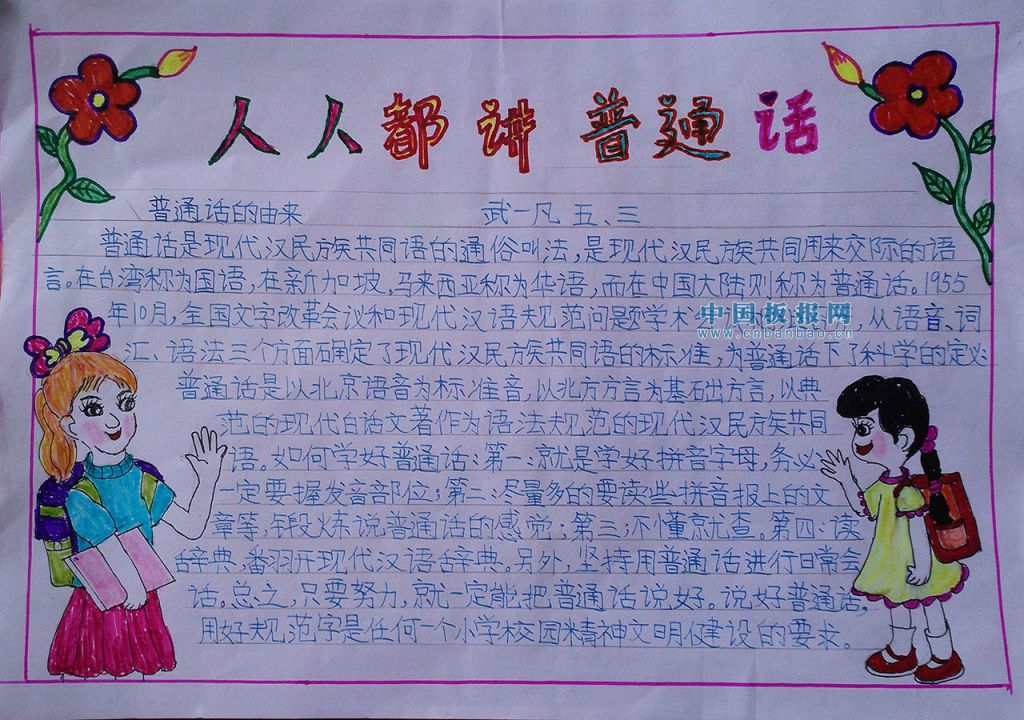 人人都讲普通话
普通话的由来 武一凡 五、三
普通话是现代汉民族共同语的通俗叫法,是现代汉民族共同用来交际的语
言。在台湾称为国语,在新加坡、马来西亚称为华语,而在中国大陆则称为普通话。1955
年10月,全国文字改革会议和现代汉语规范问题学术 ,从语音、词
中国板报网
www.cnbanbao.cn
汇、语法三个方面确定了现代汉民族共同语的标准,为普通话下了科学的定义:
普通话是以北京语音为标准音,以北方方言为基础方言,以典
范的现代白话文著作为语法规范的现代汉民族共同
语。如何学好普通话:第一:就是学好拼音字母,务必
一定要握发音部位;第二:尽量多的要读些拼音报上的文
章等,锻炼说普通话的感觉;第三;不懂就查。第四:读
辞典,翻开现代汉语辞典。另外,坚持用普通话进行日常会
话。总之,只要努力,就一定能把普通话说好。说好普通话,
用好规范字是任何一个小学校园精神文明建设的要求。